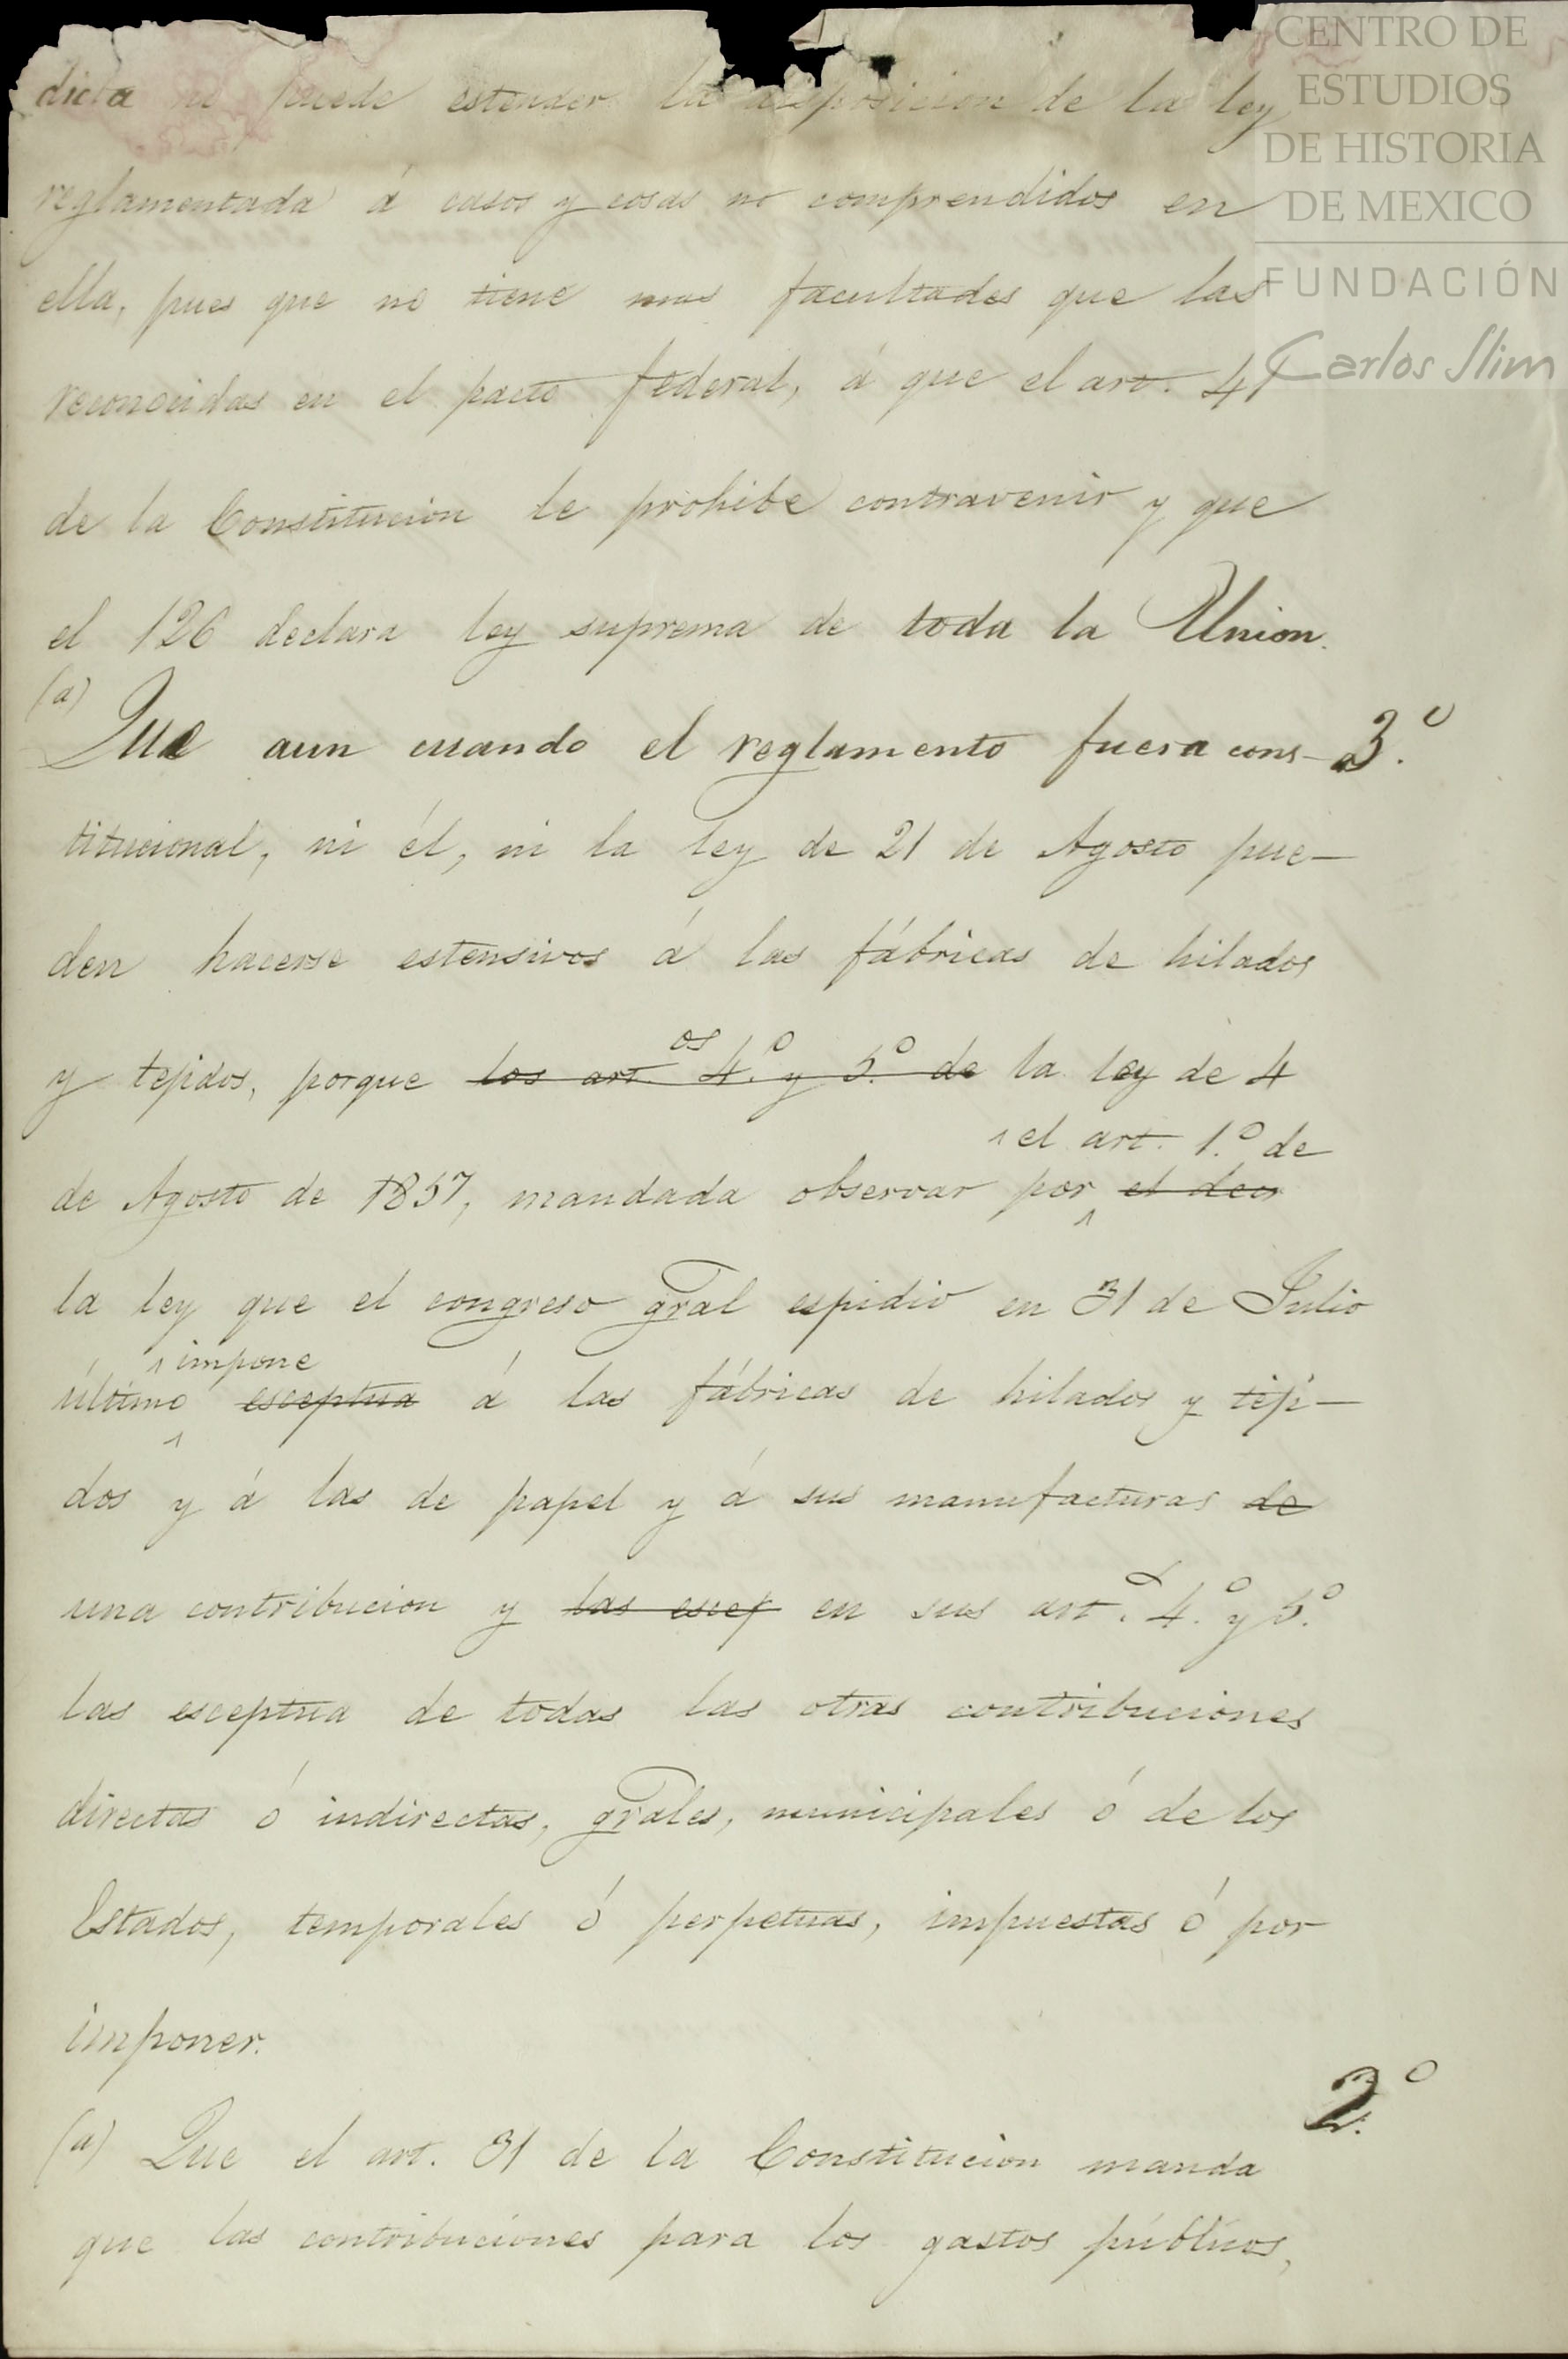 CENTRO DE
ESTUDIOS
DE HISTORIA
DE MEXICO
FUNDACIÓN
Carlos Slim
dicta ni puede estender la disposicion de la ley
reglamentada á casos y cosas no comprendidos en
ella, pues que no tiene mas facultades que las
reconocidas en el pacto federal, á que el art. 41
de la Constitucion le prohibe contravenir y que
el 126 declara ley suprema de toda la Union.
(a)
Que aun cuando el reglamento fuera cons- 3.º
titucional, ni él, ni la ley de 21 de Agosto pue-
den hacerse estensivos á las fábricas de hilados
y tejidos, porque los art.os 4.º y 5.º de la ley de 4
el art. 1.º de
de Agosto de 1857, mandada observar por el decr
la ley que el congreso gral espidió en 31 de Julio
impone
último esceptua á las fábricas de hilados y teji-
dos y á las de papel y á sus manufacturas de
una contribucion y las escep en sus art.s 4.º y 5.º
las esceptua de todas las otras contribuciones
directas ó indirectas, grales, municipales ó de los
Estados, temporales ó perpetuas, impuestas ó por
imponer.
2.º
(a) Que el art. 31 de la Constitucion manda
que las contribuciones para los gastos públicos,